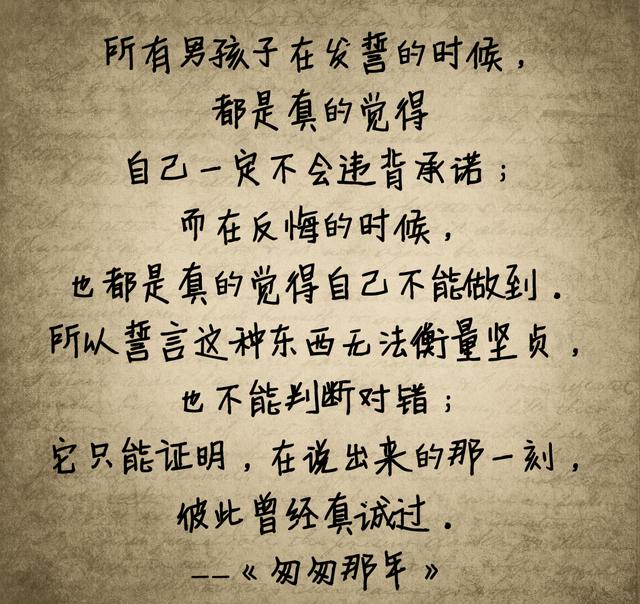 所有男孩子在发誓的时候，
都是真的觉得
自己一定不会违背承诺；
而在反悔的时候，
也都是真的觉得自己不能做到．
所以誓言这种东西无法衡量坚贞，
也不能判断对错；
它只能证明，在说出来的那一刻，
彼此曾经真诚过．
——《匆匆那年》